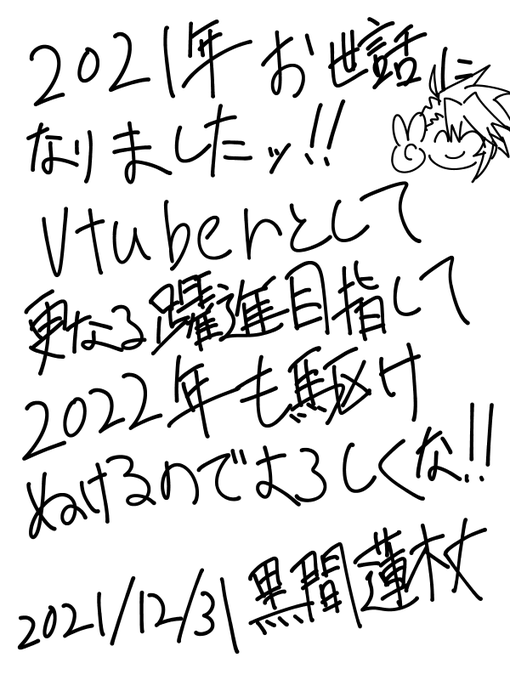 2021年お世話に
なりましたッ!!
Vtuberとして
更なる躍進目指して
2022年も駆け
ぬけるのでよろしくな!!
2021/12/31 黒間蓮杖